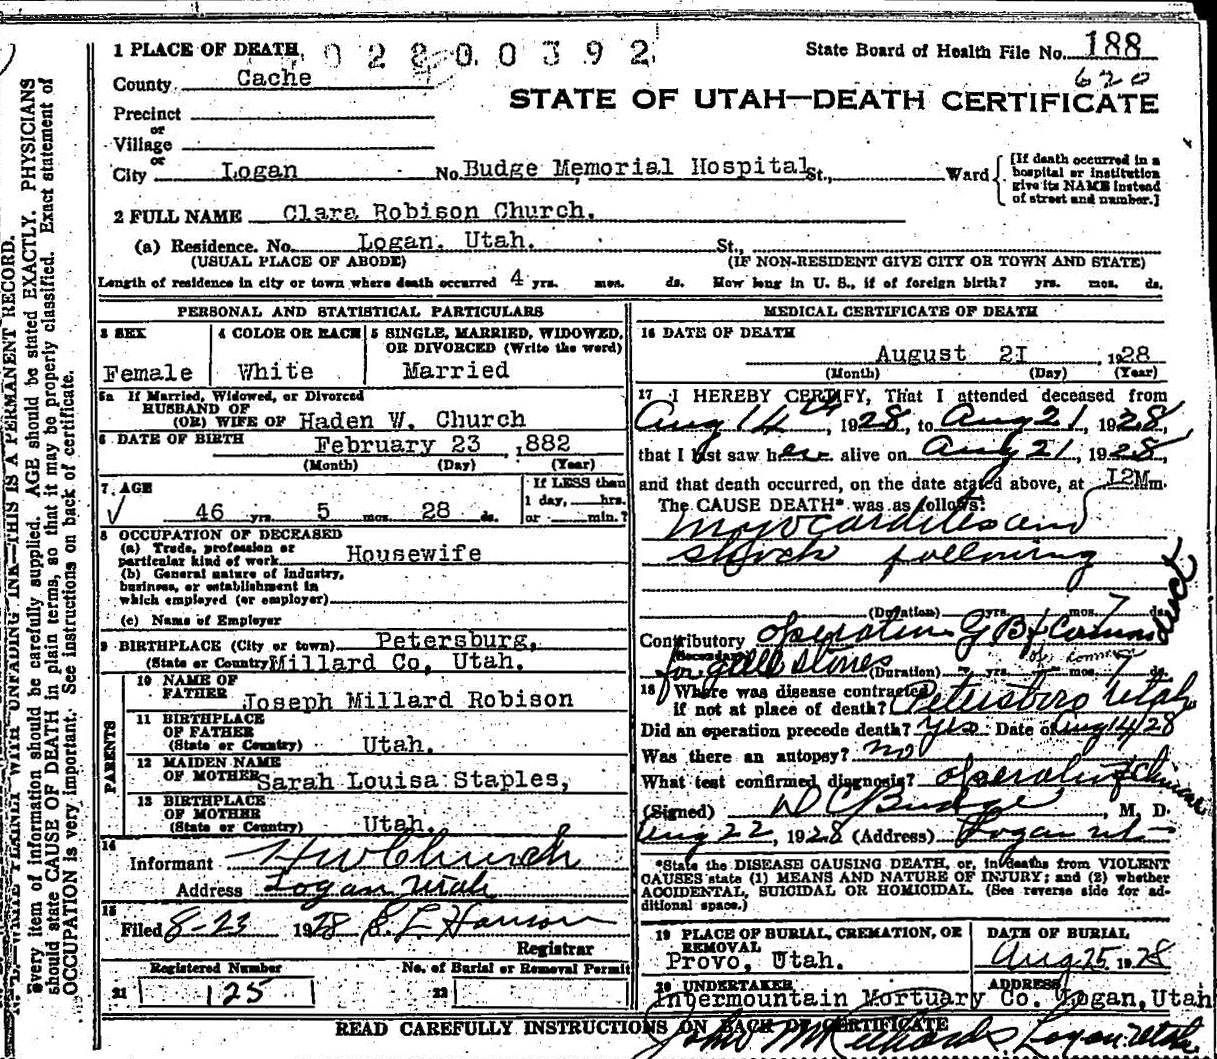 1 PLACE OF DEATH 02200392 State Board of Health File No. 188
County Cache 620
STATE OF UTAH—DEATH CERTIFICATE
Precinct
or
Village
or
City Logan No. Budge Memorial Hospital St., Ward
[If death occurred in a hospital or institution give its NAME instead of street and number.]
2 FULL NAME Clara Robison Church.
(a) Residence. No. Logan. Utah. St.,
(USUAL PLACE OF ABODE) (IF NON-RESIDENT GIVE CITY OR TOWN AND STATE)
Length of residence in city or town where death occurred 4 yrs. mos. ds. How long in U. S., if of foreign birth? yrs. mos. ds.
PERSONAL AND STATISTICAL PARTICULARS
3 SEX
Female
4 COLOR OR RACE
White
5 SINGLE, MARRIED, WIDOWED,
OR DIVORCED (Write the word)
Married
5a If Married, Widowed, or Divorced
HUSBAND OF
(OR) WIFE OF Haden W. Church
6 DATE OF BIRTH February 23 , 1882
(Month) (Day) (Year)
7 AGE
√ 46 yrs. 5 mos. 28 ds.
If LESS than
1 day, hrs.
or min.?
8 OCCUPATION OF DECEASED
(a) Trade, profession or
particular kind of work Housewife
(b) General nature of industry,
business, or establishment in
which employed (or employer)
(c) Name of Employer
9 BIRTHPLACE (City or town) Petersburg,
(State or Country) Millard Co, Utah.
PARENTS
10 NAME OF
FATHER Joseph Millard Robison
11 BIRTHPLACE
OF FATHER
(State or Country) Utah.
12 MAIDEN NAME
OF MOTHER Sarah Louisa Staples,
13 BIRTHPLACE
OF MOTHER
(State or Country) Utah.
14
Informant H W Church
Address Logan Utah
15
Filed 8-23 1928 E L Hanson
Registrar
Registered Number No. of Burial or Removal Permit
21 125 22
MEDICAL CERTIFICATE OF DEATH
16 DATE OF DEATH
August 21 1928
(Month) (Day) (Year)
17 I HEREBY CERTIFY, That I attended deceased from
Aug 14th, 1928, to Aug 21, 1928,
that I last saw her alive on Aug 21, 1928,
and that death occurred, on the date stated above, at 12M m.
The CAUSE DEATH* was as follows:
Myocarditis and
shock following
(Duration) yrs. mos. 7 ds.
Contributory operation G B & Common duct
(Secondary) of common
for gall stones (Duration) yrs. mos. 7 ds.
18 Where was disease contracted
if not at place of death? Petersboro Utah
Did an operation precede death? Yes Date of Aug 14/28
Was there an autopsy? no
What test confirmed diagnosis? operating & Clinical
(Signed) D C Budge, M. D.
Aug 22, 1928 (Address) Logan Ut
*State the DISEASE CAUSING DEATH, or, in deaths from VIOLENT
CAUSES state (1) MEANS AND NATURE OF INJURY; and (2) whether
ACCIDENTAL, SUICIDAL OR HOMICIDAL. (See reverse side for additional space.)
19 PLACE OF BURIAL, CREMATION, OR
REMOVAL
Provo, Utah.
DATE OF BURIAL
Aug 25 1928
20 UNDERTAKER ADDRESS
Intermountain Mortuary Co. Logan, Utah
READ CAREFULLY INSTRUCTIONS ON BACK OF CERTIFICATE
John M Richards, Logan Utah.
N. B.—WRITE PLAINLY WITH UNFADING INK—THIS IS A PERMANENT RECORD.
Every item of information should be carefully supplied. AGE should be stated EXACTLY. PHYSICIANS
should state CAUSE OF DEATH in plain terms, so that it may be properly classified. Exact statement of
OCCUPATION is very important. See instructions on back of certificate.